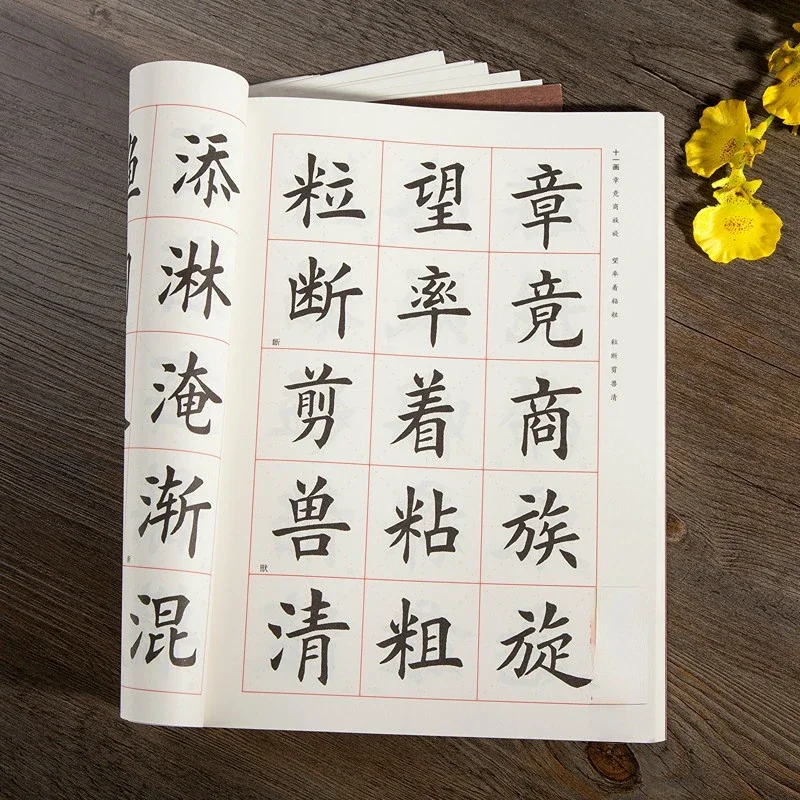 十一画 章 竟 商 族 旋 望 率 着 粘 粗 粒 断 剪 兽 清
章
竟
商
族
旋
望
率
着
粘
粗
粒
断
斷
剪
兽
獸
清
添
淋
淹
渐
混